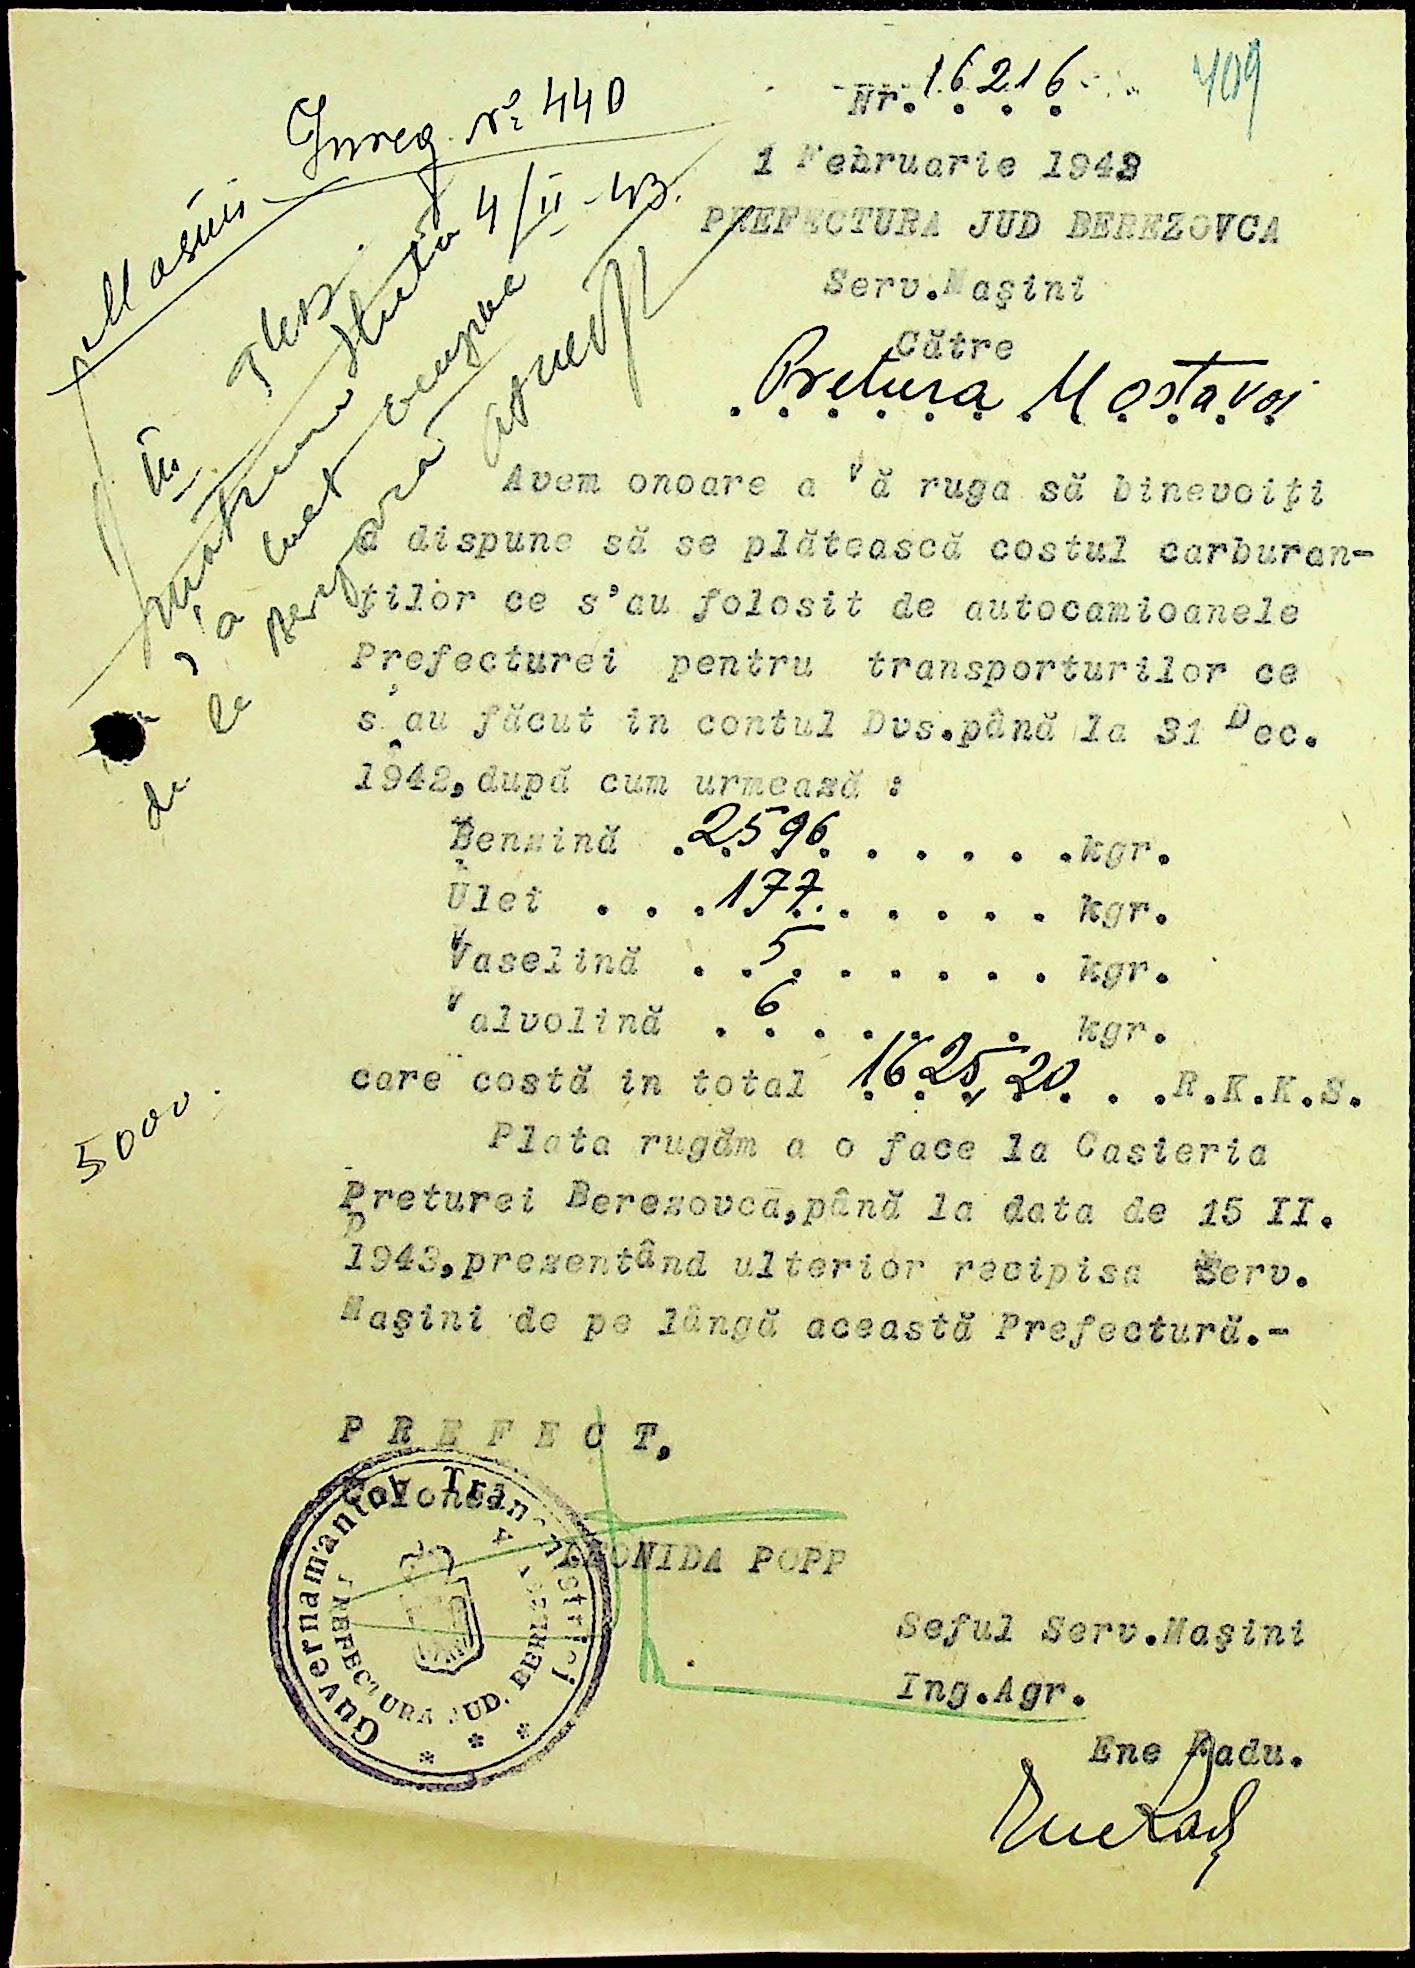 Nr. 16216
409
1 Februarie 1943
PREFECTURA JUD BEREZOVCA
Serv.Maşini
Către
Pretura Mostavoi
Inreg. Nº 440
4/II-43.
Masini
Avem onoare a Vă ruga să binevoiţi
a dispune să se plătească costul carburan-
ţilor ce s'au folosit de autocamioanele
Prefecturei pentru transporturilor ce
s'au făcut in contul Dvs.până la 31 Dec.
1942,după cum urmează :
Benzină . 2596 . . . . . . kgr.
Ulei . . . 177. . . . . . kgr.
Vaselină . . 5 . . . . . . kgr.
Valvolină . 6 . . . . . kgr.
care costă in total 1625,20 . . .R.K.K.S.
5000.
Plata rugăm a o face la Casieria
Preturei Berezovca,până la data de 15 II.
1943,prezentând ulterior recipisa Serv.
Maşini de pe lângă această Prefectură.-
P R E F E C T,
Colonel
LEONIDA POPP
Guvernamantul Transnistriei
PREFECTURA JUD. BEREZOVCA
Seful Serv.Maşini
Ing.Agr.
Ene Radu.
Ene Radu